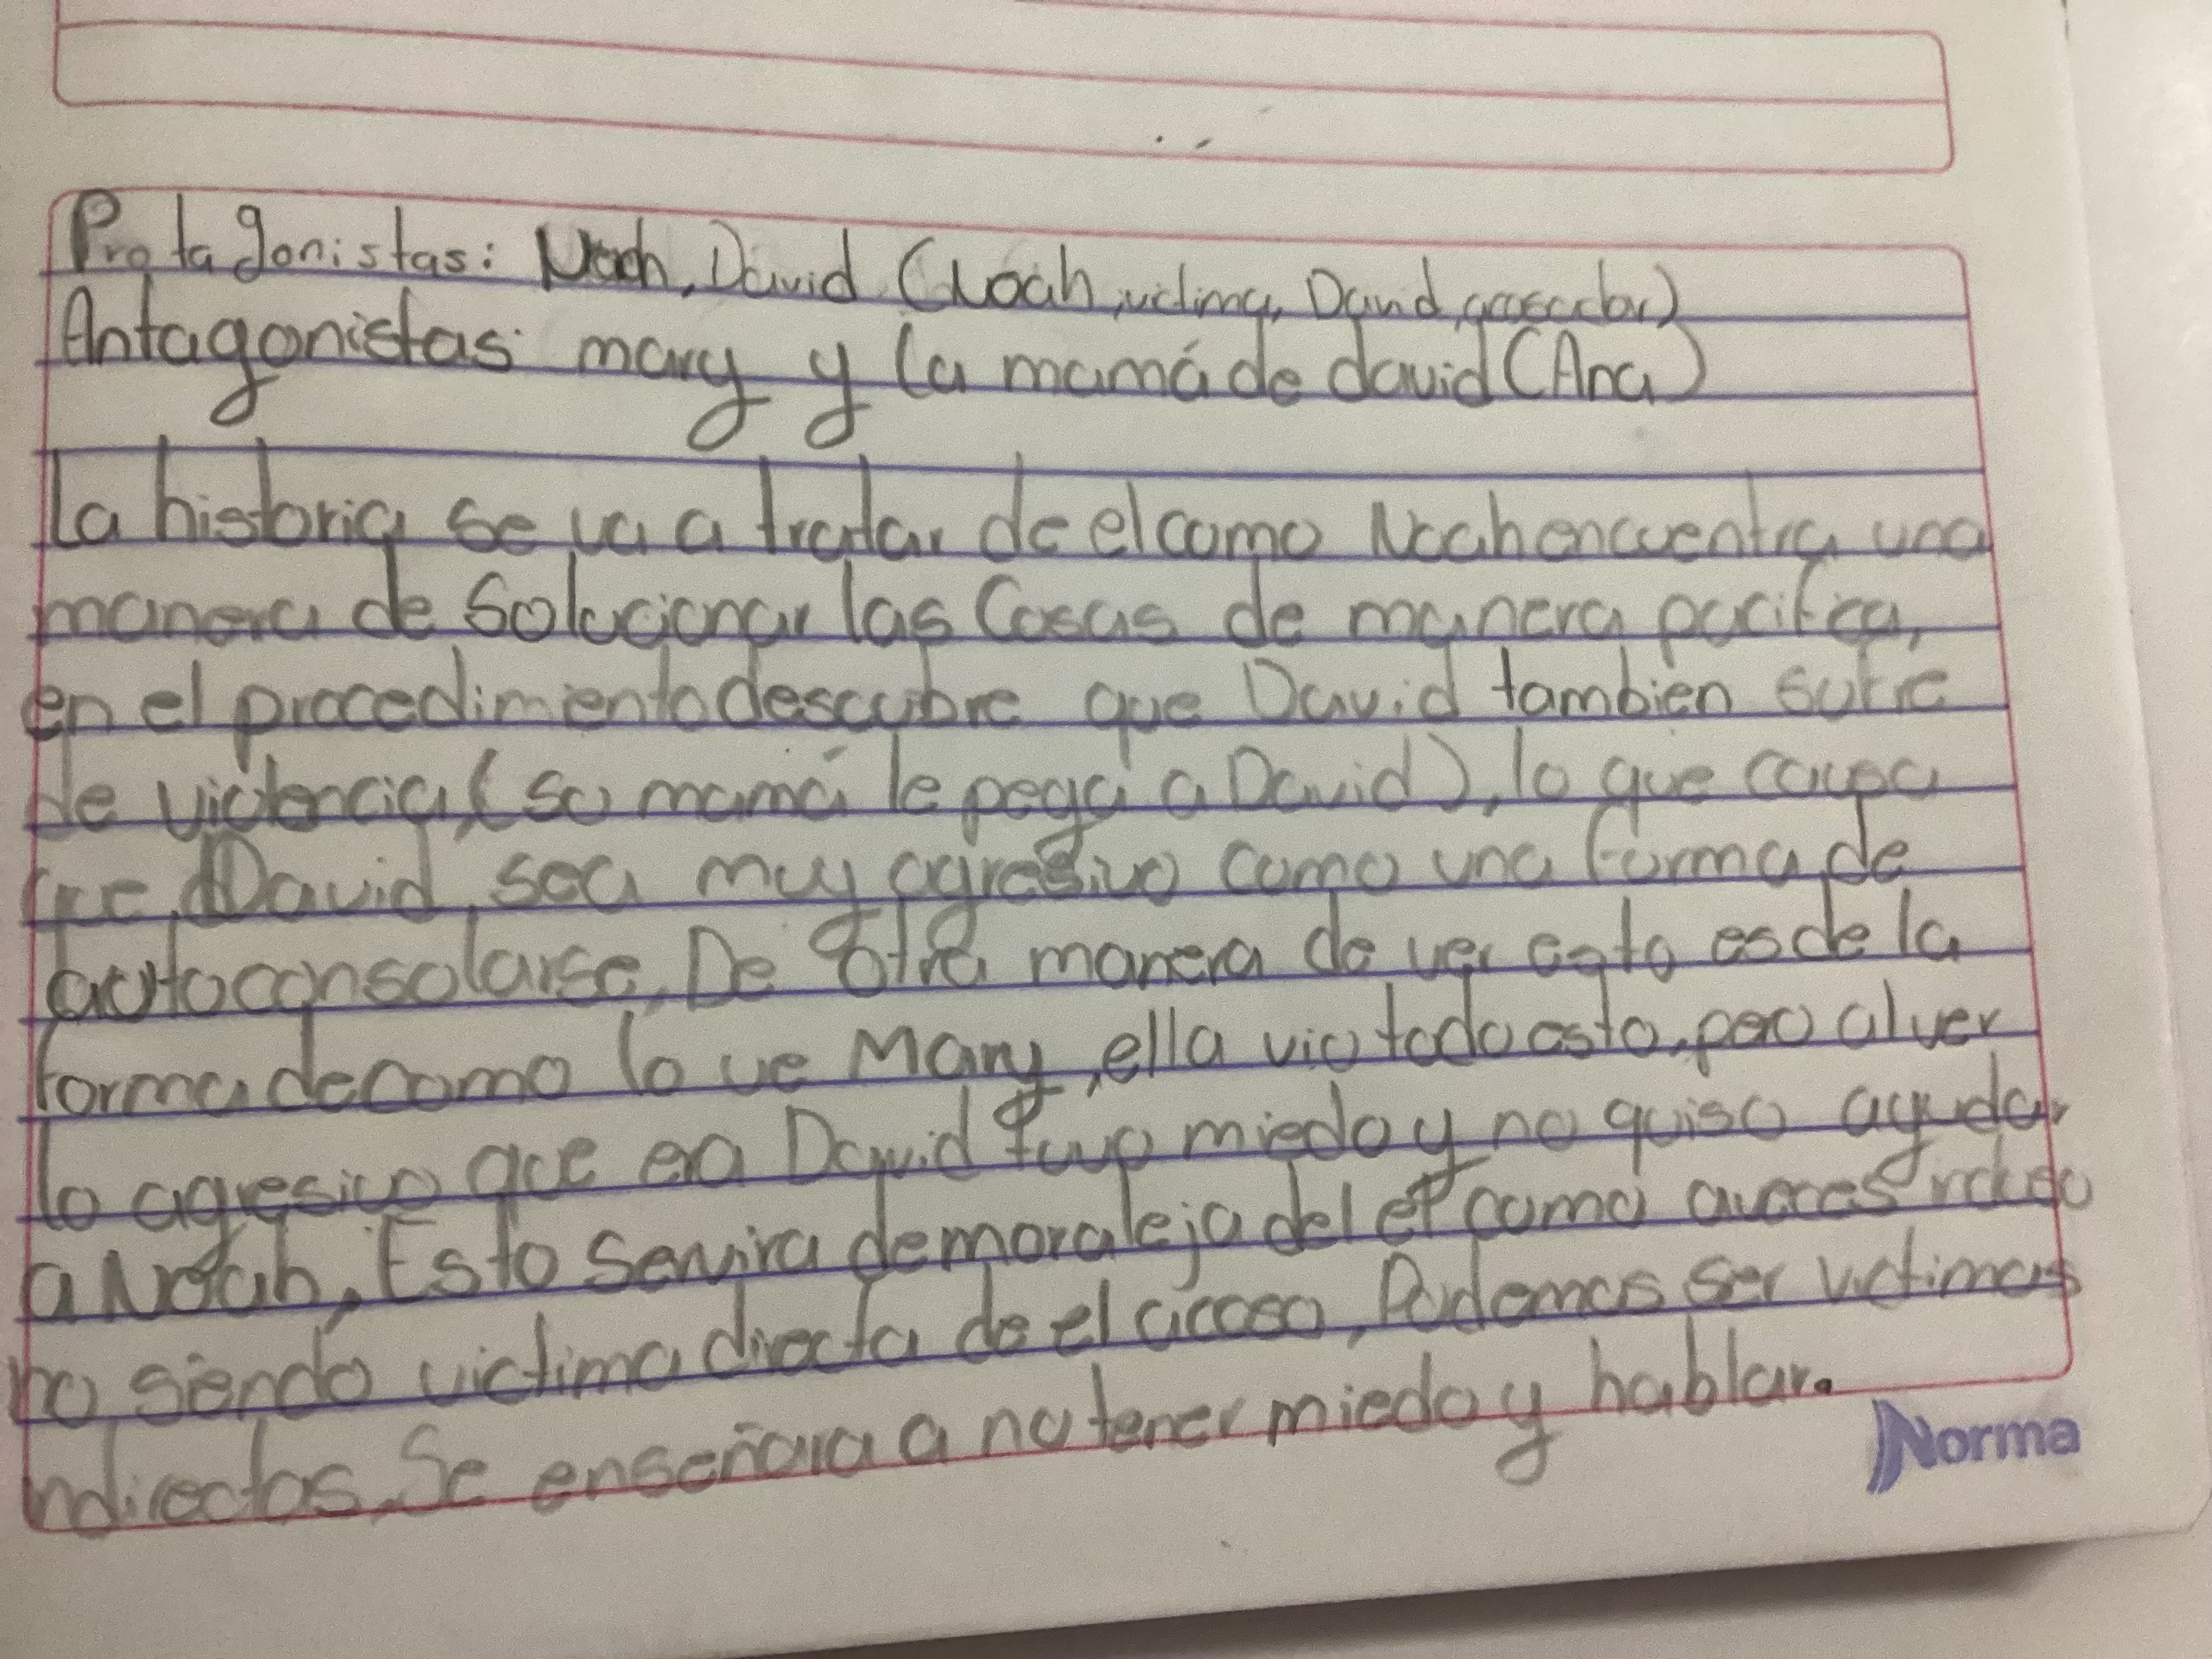 Protagonistas: Noah, David (Noah, victima, David, acosador)
Antagonistas: mary y la mamá de david (Ana)
la historia se va a tratar de el como Noah encuentra una
manera de Solucionar las Cosas de manera pacifica,
en el procedimiento descubre que David tambien sufre
de violencia, (su mamá le pega a David), lo que causa
que David, sea muy agresivo como una forma de
autoconsolarse, De otra manera de ver esto es de la
forma de como lo ve Mary, ella vio todo esto, pero al ver
lo agresivo que era David tuvo miedo y no quiso ayudar
a Noah, Esto servira de moraleja del el como aveces incluso
no siendo victima directa de el acoso, Podemos ser victimas
indirectas, Se enseñara a no tener miedo y hablar.
Norma